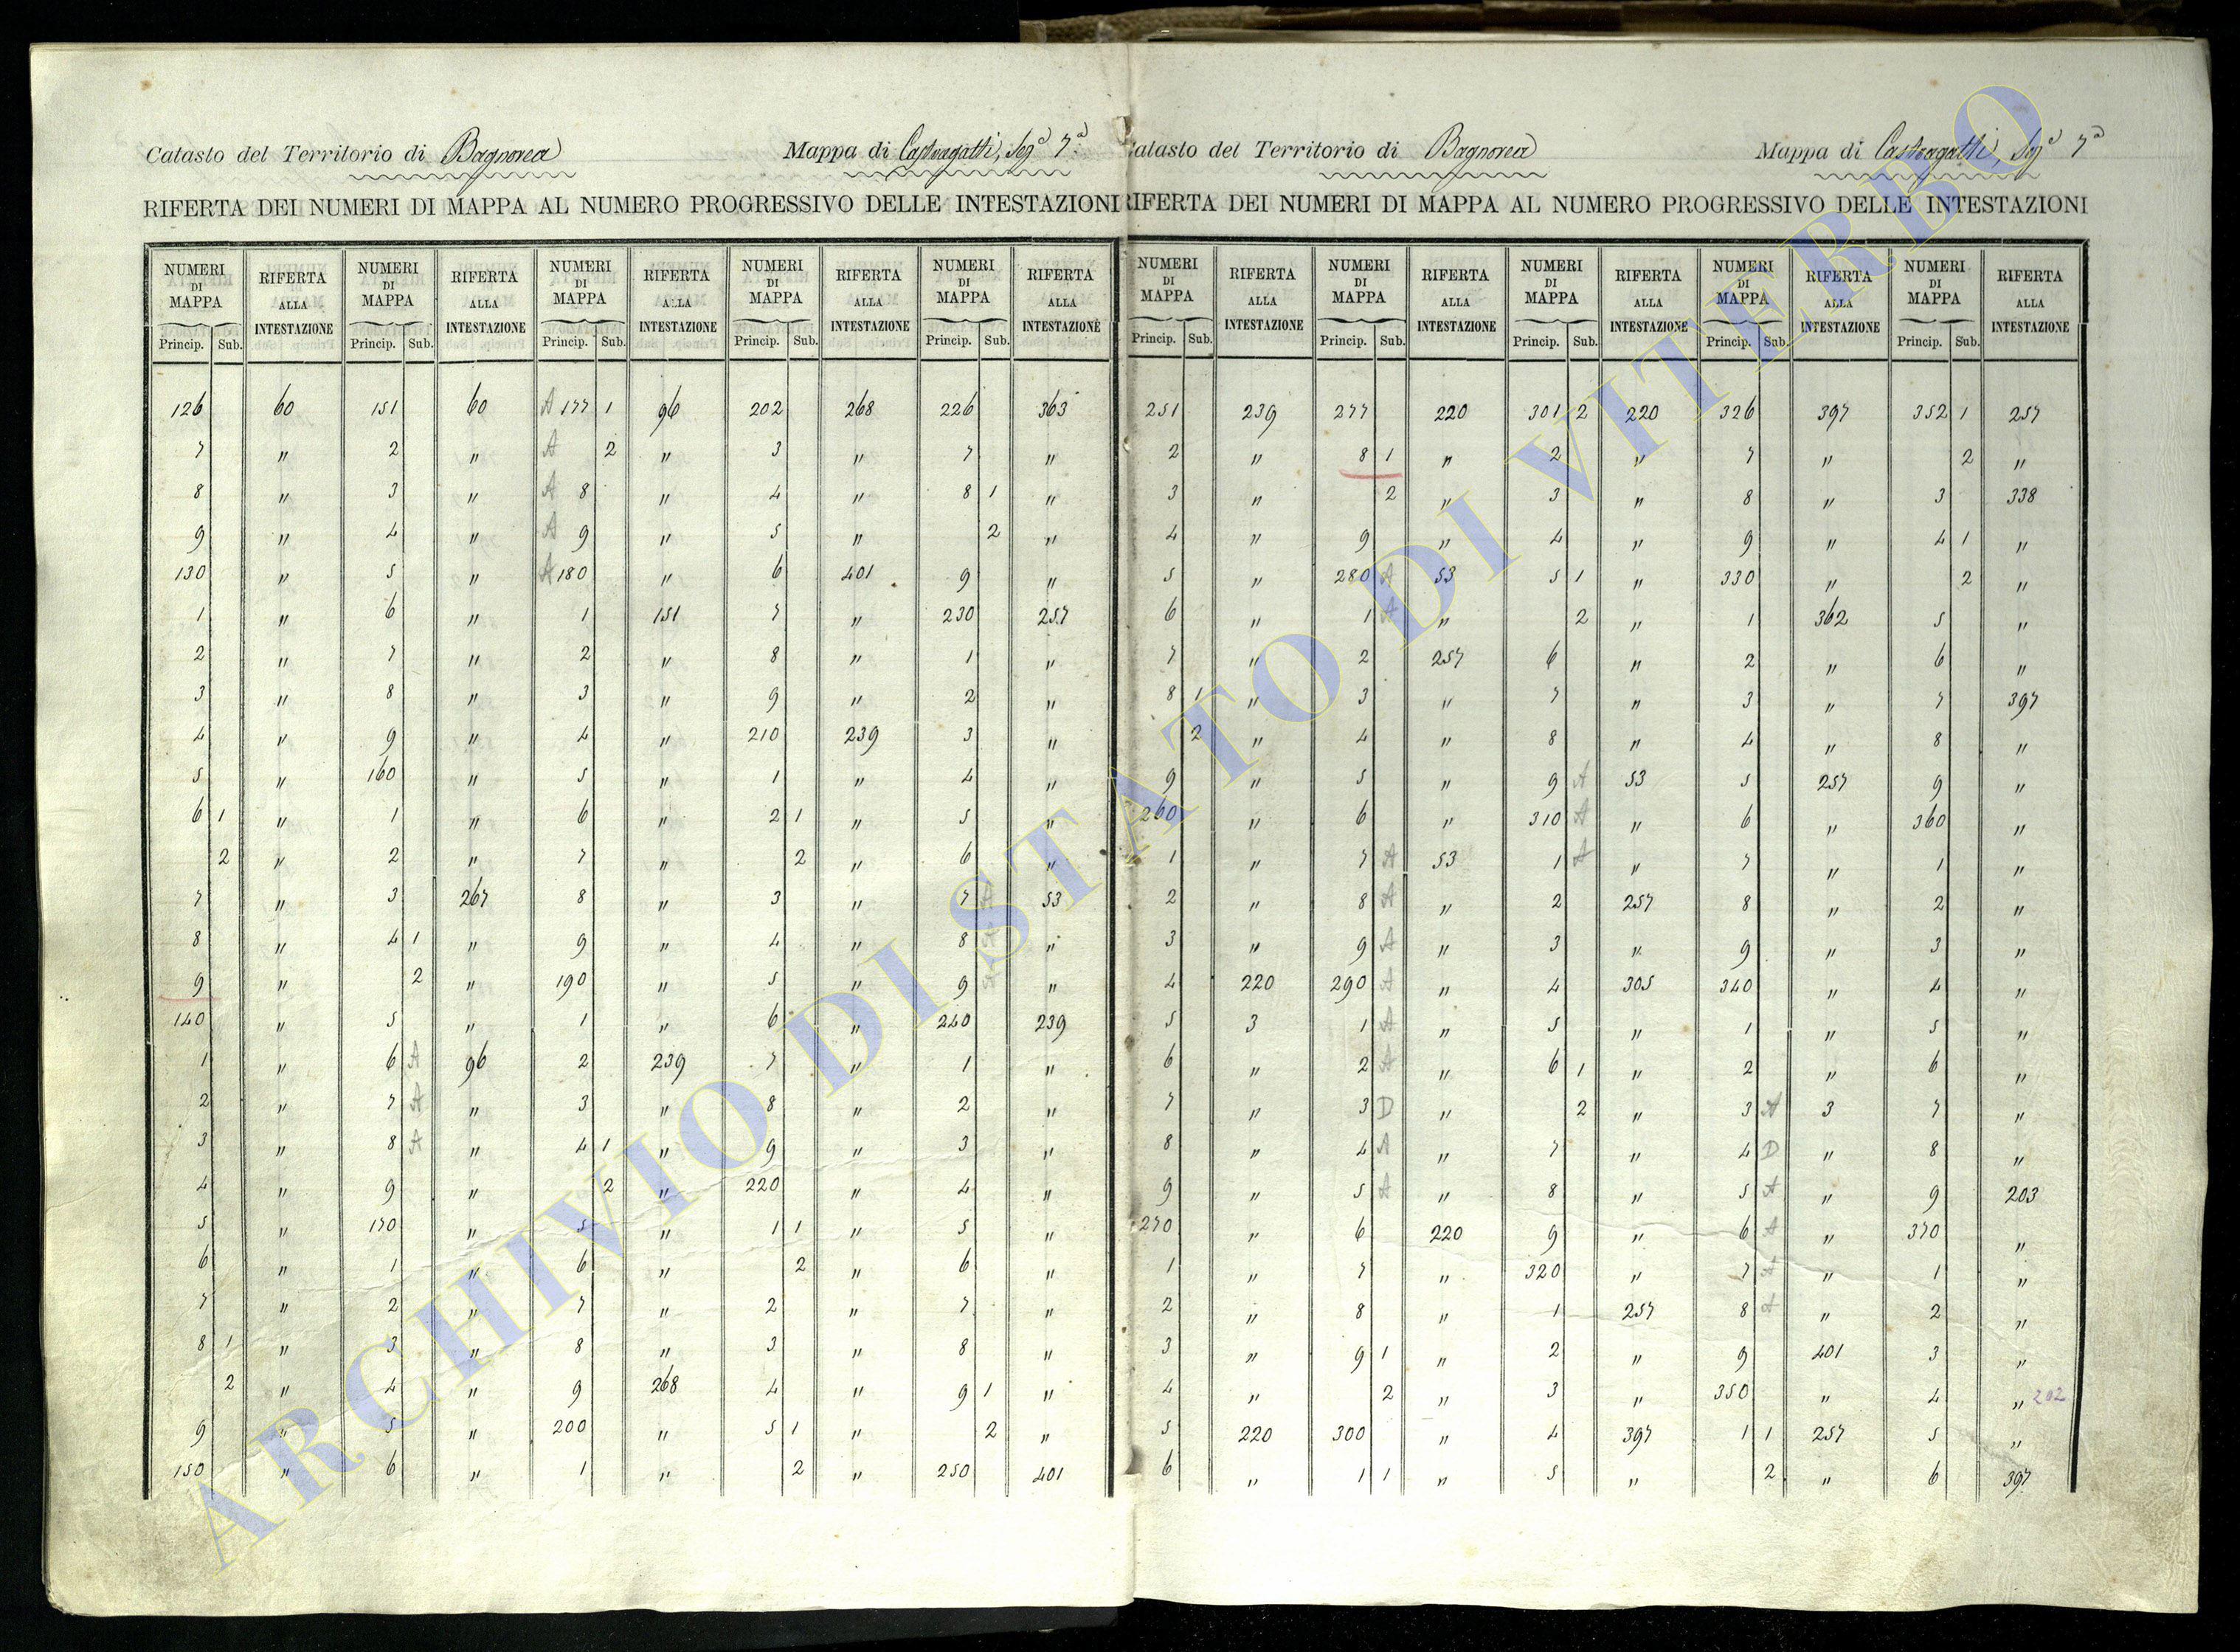 Catasto del Territorio di Bagnorea Mappa di Castragatti, Sez.ª 7ª
RIFERTA DEI NUMERI DI MAPPA AL NUMERO PROGRESSIVO DELLE INTESTAZIONI
NUMERI DI MAPPA RIFERTA ALLA INTESTAZIONE NUMERI DI MAPPA RIFERTA ALLA INTESTAZIONE NUMERI DI MAPPA RIFERTA ALLA INTESTAZIONE NUMERI DI MAPPA RIFERTA ALLA INTESTAZIONE NUMERI DI MAPPA RIFERTA ALLA INTESTAZIONE
Princip. Sub. Princip. Sub. Princip. Sub. Princip. Sub. Princip. Sub.
126 60 151 60 A 177 1 96 202 268 226 363
7 " 2 " A 2 " 3 " 7 "
8 " 3 " A 8 " 4 " 8 1 "
9 " 4 " A 9 " 5 " 2 "
130 " 5 " A 180 " 6 401 9 "
1 " 6 " 1 151 7 " 230 257
2 " 7 " 2 " 8 " 1 "
3 " 8 " 3 " 9 " 2 "
4 " 9 " 4 " 210 239 3 "
5 " 160 " 5 " 1 " 4 "
6 1 " 1 " 6 " 2 1 " 5 "
2 " 2 " 7 " 2 " 6 "
7 " 3 267 8 " 3 " 7 A 53
8 " 4 1 " 9 " 4 " 8 A "
9 " 2 " 190 " 5 " 9 A "
140 " 5 " 1 " 6 " 240 239
1 " 6 A 96 2 239 7 " 1 "
2 " 7 A " 3 " 8 " 2 "
3 " 8 A " 4 1 " 9 " 3 "
4 " 9 " 2 " 220 " 4 "
5 " 170 " 5 " 1 1 " 5 "
6 " 1 " 6 " 2 " 6 "
7 " 2 " 7 " 2 " 7 "
8 1 " 3 " 8 " 3 " 8 "
2 " 4 " 9 268 4 " 9 1 "
9 " 5 " 200 " 5 1 " 2 "
150 " 6 " 1 " 2 " 250 401
Catasto del Territorio di Bagnorea Mappa di Castragatti, Sez.ª 7ª
RIFERTA DEI NUMERI DI MAPPA AL NUMERO PROGRESSIVO DELLE INTESTAZIONI
NUMERI DI MAPPA RIFERTA ALLA INTESTAZIONE NUMERI DI MAPPA RIFERTA ALLA INTESTAZIONE NUMERI DI MAPPA RIFERTA ALLA INTESTAZIONE NUMERI DI MAPPA RIFERTA ALLA INTESTAZIONE NUMERI DI MAPPA RIFERTA ALLA INTESTAZIONE
Princip. Sub. Princip. Sub. Princip. Sub. Princip. Sub. Princip. Sub.
251 239 277 220 301 2 220 326 397 352 1 257
2 " 8 1 " 2 " 7 " 2 "
3 " 2 " 3 " 8 " 3 338
4 " 9 " 4 " 9 " 4 1 "
5 " 280 A 53 5 1 " 330 " 2 "
6 " 1 A " 2 " 1 362 5 "
7 " 2 257 6 " 2 " 6 "
8 1 " 3 " 7 " 3 " 7 397
2 " 4 " 8 " 4 " 8 "
9 " 5 " 9 A 53 5 257 9 "
260 " 6 " 310 A " 6 " 360 "
1 " 7 A 53 1 A " 7 " 1 "
2 " 8 A " 2 257 8 " 2 "
3 " 9 A " 3 " 9 " 3 "
4 220 290 A " 4 305 340 " 4 "
5 3 1 A " 5 " 1 " 5 "
6 " 2 A " 6 1 " 2 " 6 "
7 " 3 D " 2 " 3 A 3 7 "
8 " 4 A " 7 " 4 D " 8 "
9 " 5 A " 8 " 5 A " 9 203
270 " 6 220 9 " 6 A " 370 "
1 " 7 " 320 " 7 A " 1 "
2 " 8 " 1 257 8 A " 2 "
3 " 9 1 " 2 " 9 401 3 "
4 " 2 " 3 " 350 " 4 " 202
5 220 300 " 4 397 1 1 257 5 "
6 " 1 1 " 5 " 2 " 6 397
ARCHIVIO DI STATO DI VITERBO